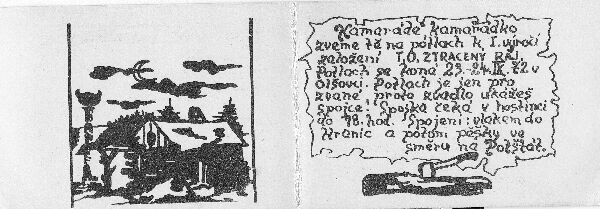 Kamaráde kamarádko
zveme tě na potlach k I. výročí
založení T.O. ZTRACENÝ RÁJ.
Potlach se koná 23.-24.IX.72 v
Olšovci. Potlach je jen pro
zvané proto zvadlo ukážeš
spojce! Spojka čeká v hostinci
do 18. hod. Spojení: vlakem do
Hranic a potom pěšky ve
směru na Potštát.